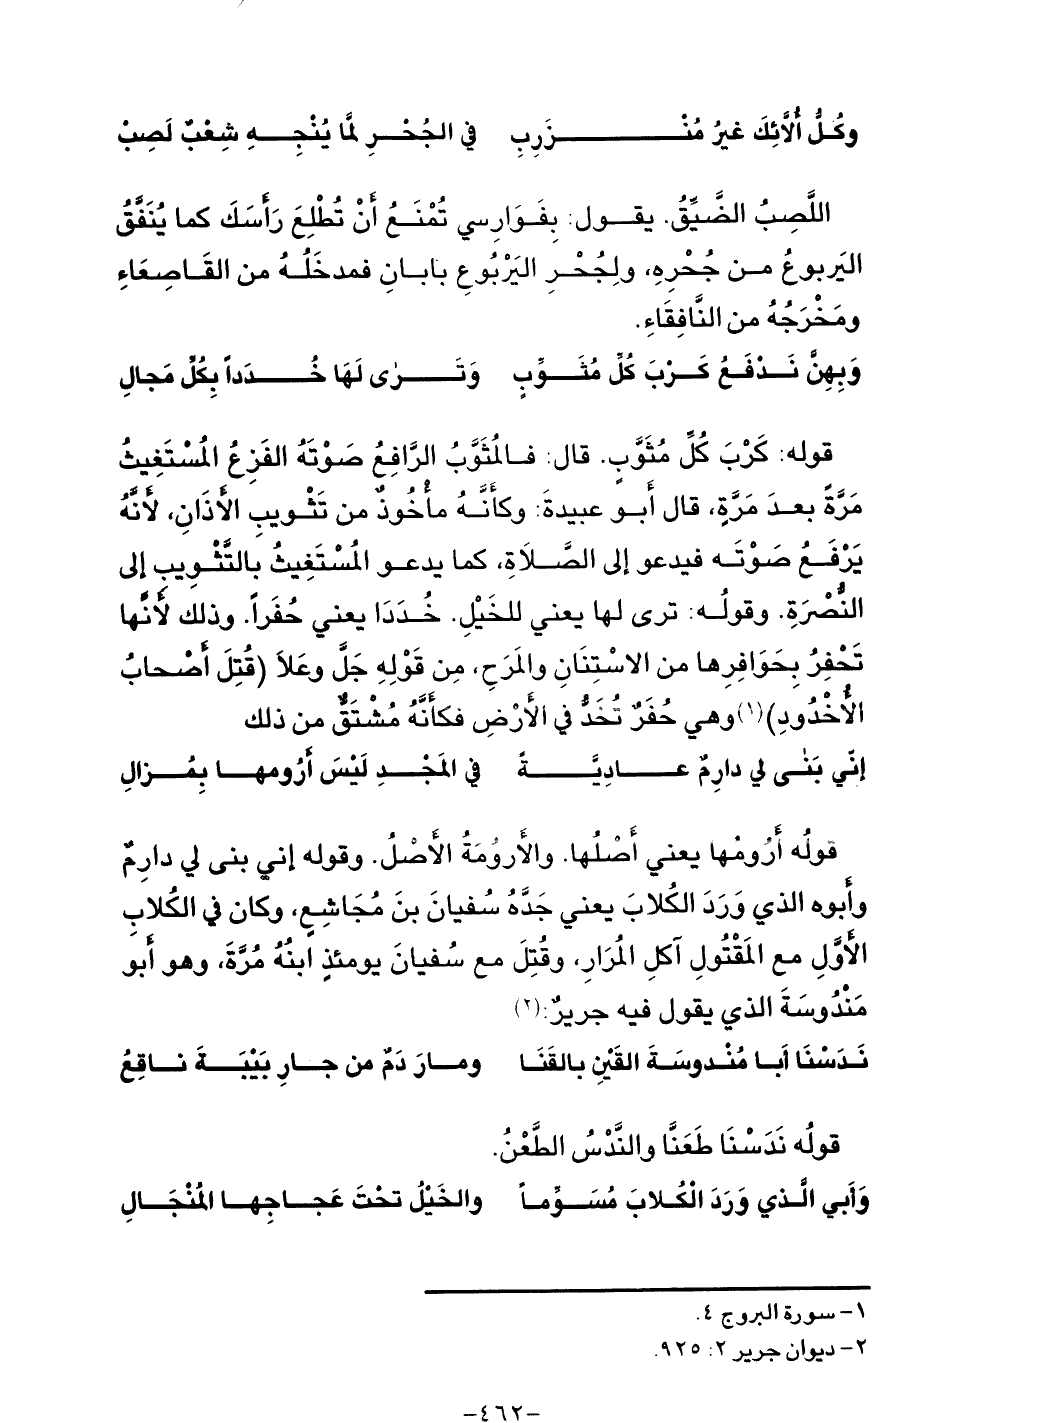 وكُلُّ أُلَّائِكَ غيرُ مُنْـزَرِبِ في الجُحْـرِ لمَّا يُنْجِـهِ شِعْبٌ لَصِبْ
اللَّصِبُ الضَّيِّقُ. يقـول: بِفَوَارِسي تُمْنَـعُ أَنْ تُطْلِعَ رَأْسَكَ كما يُنَفَّقُ
اليَربوعُ مـن جُحْرِهِ، ولِجُحْـرِ اليَرْبُوعِ بابـانِ فمدخَلُـهُ من القَـاصِعَاءِ
ومَخْرَجُهُ من النَّافِقَاءِ.
وَبِهِنَّ نَـدْفَـعُ كَـرْبَ كُلِّ مُثَـوِّبٍ وَتَـرٰى لَهَا خُـدَداً بِكُلِّ مَجالِ
قوله: كَرْبَ كُلِّ مُثَوَّبٍ. قال: فـالمُثَوَّبُ الرَّافِعُ صَوْتَهُ الفَزِعُ المُسْتَغِيثُ
مَرَّةً بعـدَ مَرَّةٍ، قال أَبـو عبيدةَ: وكأَنَّـهُ مأْخُوذٌ من تَثْـويبِ الأَذَانِ، لأَنَّهُ
يَرْفَـعُ صَوْتَـه فيدعو إلى الصَّـلاَةِ، كما يدعـو المُسْتَغِيثُ بالتَّثْـويبِ إلى
النُّصْرَةِ. وقولُـه: ترى لها يعني للخَيْلِ. خُـدَدَا يعني حُفَراً. وذلك لأَنَّها
تَحْفِرُ بِحَوَافِرِها من الاسْتِنَانِ والمَرَحِ، مِن قَوْلِهِ جَلَّ وعَلاَ (قُتِلَ أَصْحابُ
الأُخْدُودِ)(١)وهي حُفَرٌ تُخَدُّ في الأَرْضِ فكأَنَّهُ مُشْتَقٌّ من ذلك
إنّي بَنٰـى لي دارِمٌ عـادِيَّـةً في المَجْـدِ لَيْسَ أَرُومهـا بِمُـزالِ
قولُه أَرُومُها يعني أَصْلُها. والأَرومَةُ الأَصْلُ. وقوله إني بنى لي دارِمٌ
وأَبوه الذي وَرَدَ الكُلابَ يعني جَدَّهُ سُفيانَ بنَ مُجَاشِعٍ، وكان في الكُلابِ
الأَوَّلِ مع المَقْتُولِ آكلِ المُرَارِ، وقُتِلَ مع سُفيانَ يومئذٍ ابنُهُ مُرَّةَ، وهو أَبو
مَنْدُوسَةَ الذي يقول فيه جريرٌ:(٢)
نَـدَسْنَا أَبـا مُنْدوسَـةَ القَيْنِ بالقَنَـا ومـارَ دَمٌ من جـارِ بَيْبَـةَ نـاقِعُ
قولُه نَدَسْنَا طَعَنَّا والنَّدْسُ الطَّعْنُ.
وَأَبي الَّـذي وَرَدَ الْكُـلابَ مُسَـوِّمـاً والخَيْلُ تحْتَ عَجـاجِهـا المُنْجَـالِ
١- سورة البروج ٤.
٢- ديوان جرير ٢: ٩٢٥.
-٤٦٢-